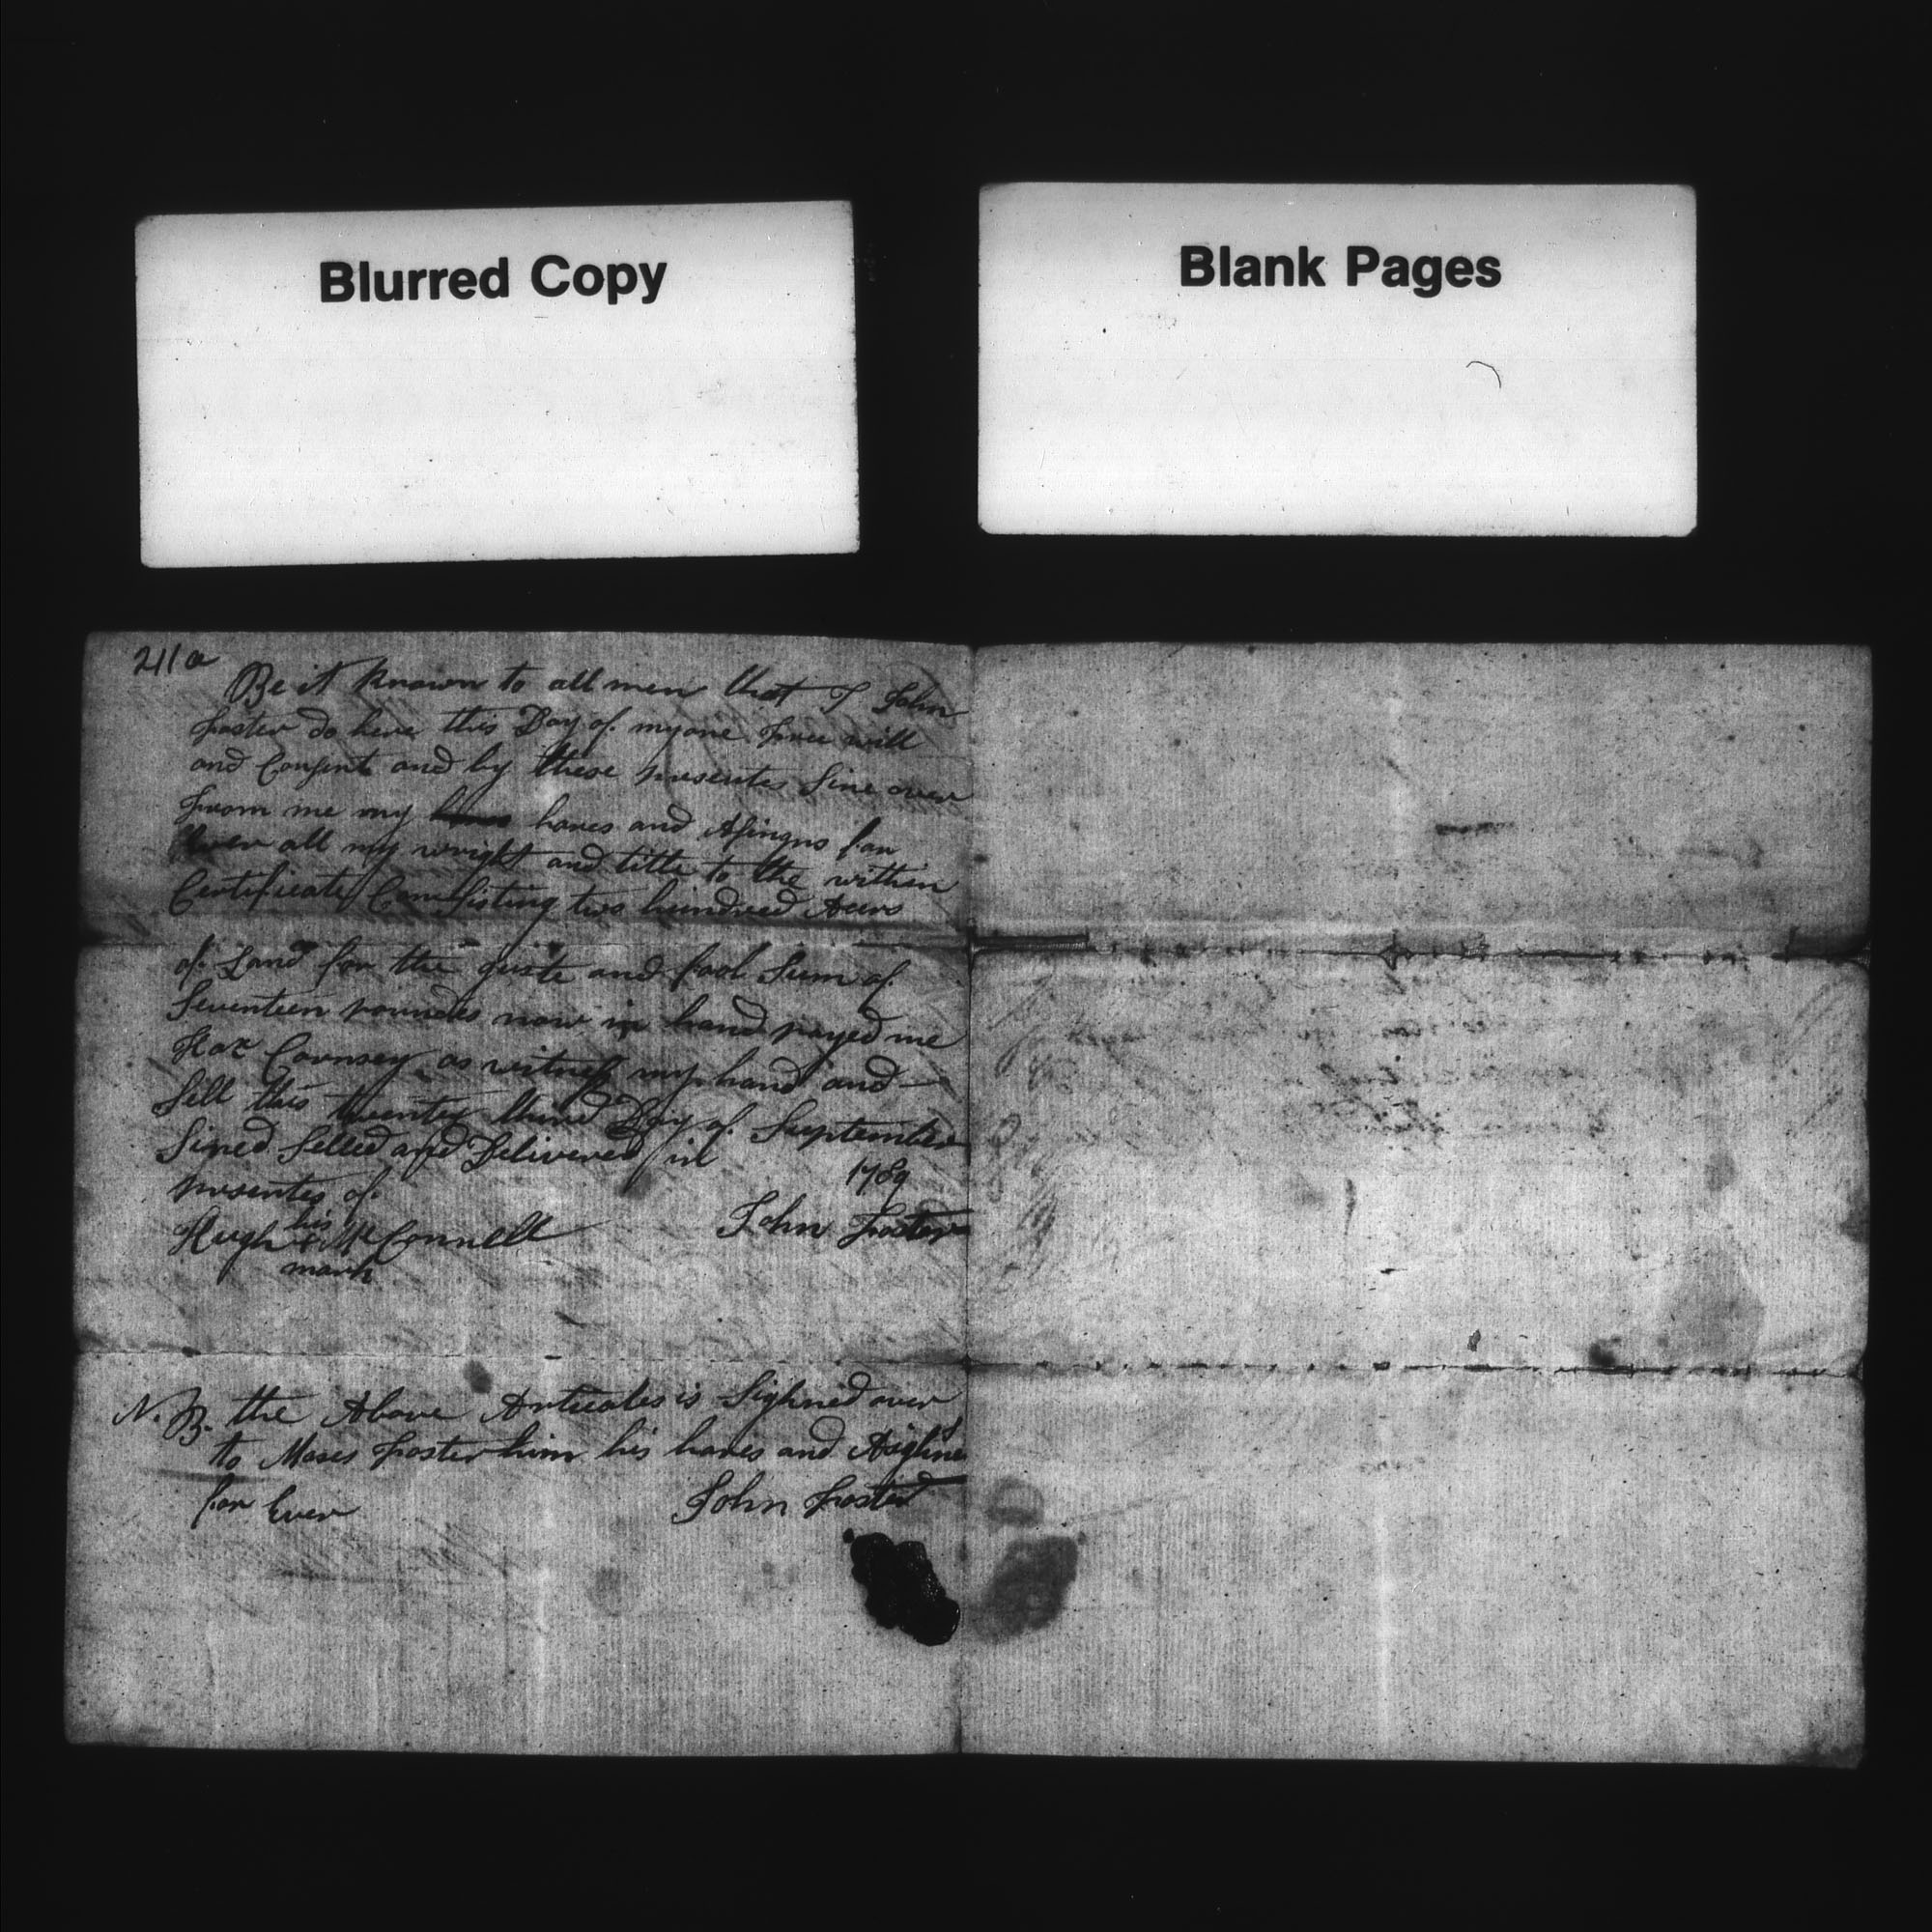 Blurred Copy
Blank Pages
211a
Be it known to all men that I John
foster do here this Day of my one free will
and Consent and by these presentes Sine over
from me my hares and Asingns for
Ever all my wright and title to the within
Certificate Consisting two hundred Acers
of Land for the guste and fool Sum of
Seventeen poundes now in hand payed me
Hax Cournsey as witness my hand and
Sell this twenty third Day of Sseptember
Sined Selled and Delivered in 1789
presentes of
his
Hugh x McConnell John Foster
mark
N. B. the Above Arteceles is Sighned over
to Moses foster him his hares and Asighnes
for Ever John foster